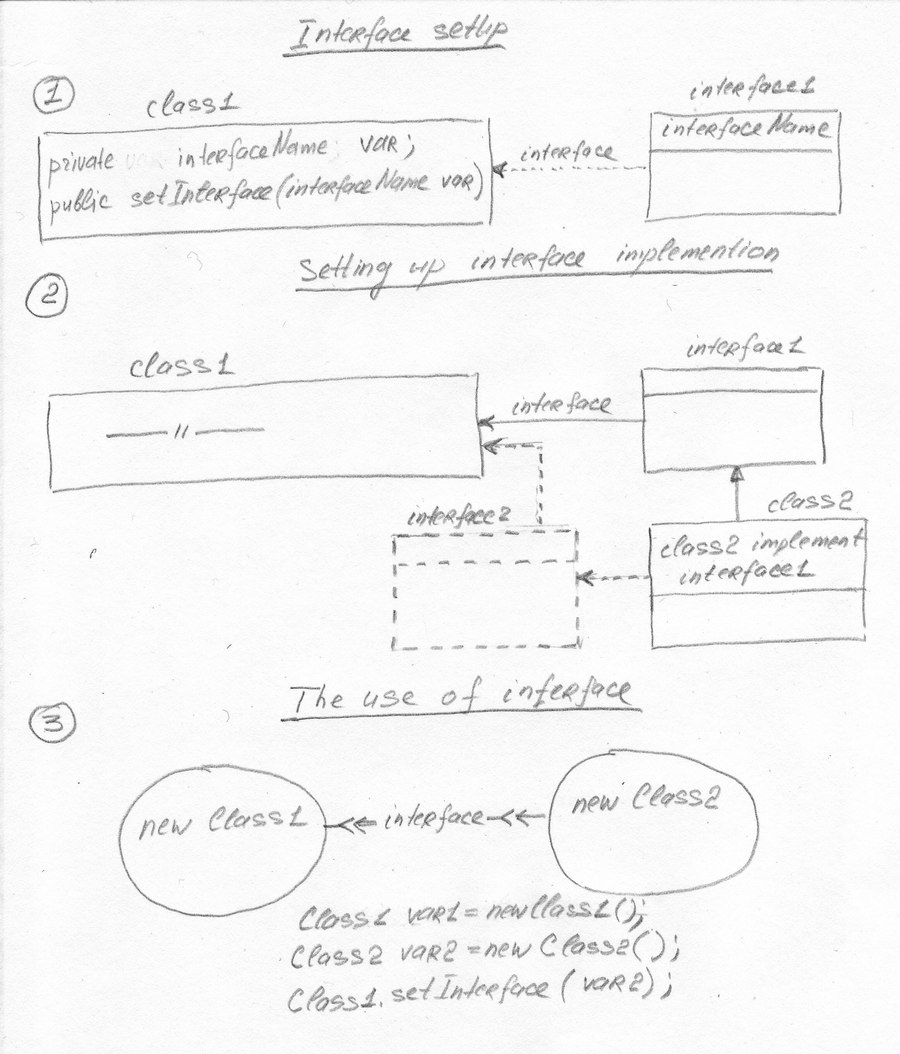 Interface setup
1
class1
interface1
private interfaceName var;
public setInterface(interfaceName var)
interface
interfaceName
Setting up interface implemention
2
class1
interface1
interface
— 〃 —
interface2
class2
class2 implement
interface1
The use of interface
3
new Class1
interface
new Class2
Class1 var1 = new Class1();
Class2 var2 = new Class2();
Class1.setInterface (var2);